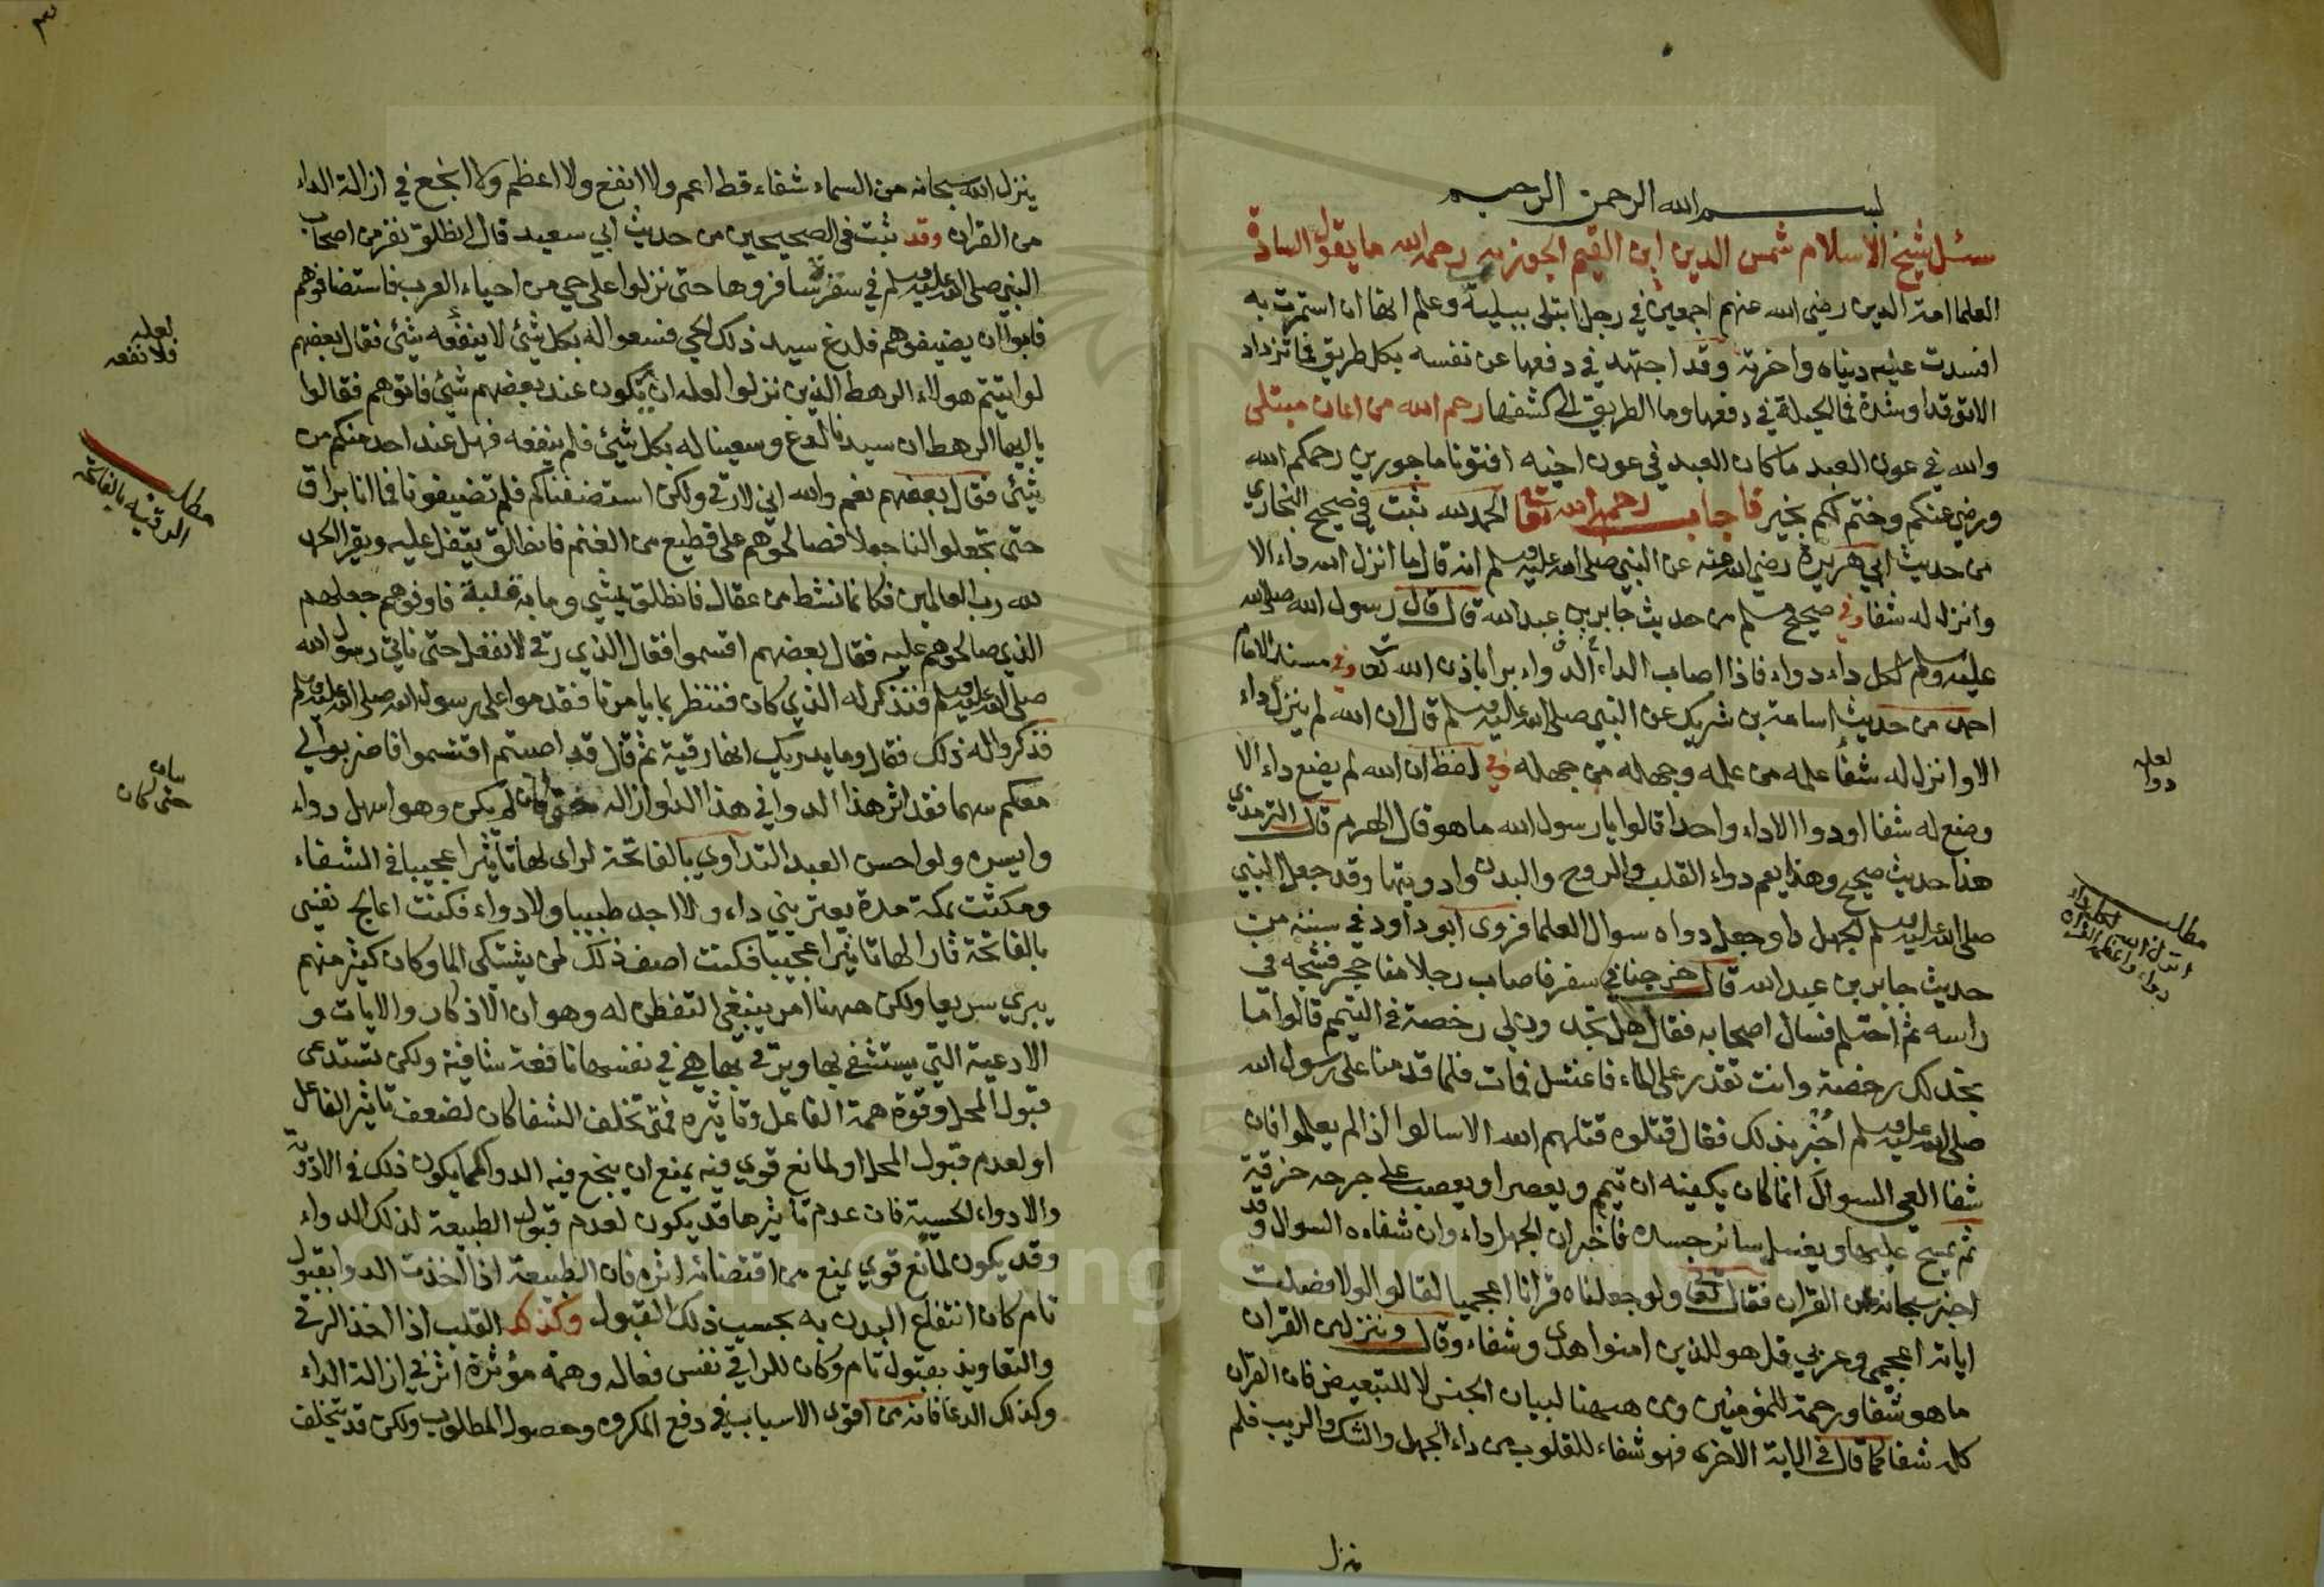 بسم الله الرحمن الرحيم
سئل شيخ الاسلام شمس الدين ابن القيم الجوزيه رحمه الله ما يقول السادة
العلما ائمة الدين رضي الله عنهم اجمعين في رجل ابتلى ببلية وعلم انها ان استمرت به
افسدت عليه دنياه واخرته وقد اجتهد في دفعها عن نفسه بكل طريق فما تزداد
الا توقدا وشدة فما الحيلة في دفعها وما الطريق الى كشفها رحم الله من اعان مبتلى
والله في عون العبد ما كان العبد في عون اخيه افتونا ماجورين رحمكم الله
ورضي عنكم وختم لكم بخير فاجاب رحمه الله تعا الحمد لله ثبت في صحيح البخاري
من حديث ابي هريرة رضي الله عنه عن النبي صلى الله عليه وسلم انه قال ما انزل الله داء الا
وانزل له شفا وفي صحيح مسلم من حديث جابر بن عبد الله قال قال رسول الله صلى الله
عليه وسلم لكل داء دواء فاذا اصاب الداء الدواء برا باذن الله تعا وفي مسند الامام
احمد من حديث اسامة بن شريك عن النبي صلى الله عليه وسلم قال ان الله لم ينزل داء
الا وانزل له شفأ علمه من علمه وجهله من جهله وفي لفظ ان الله لم يضع داء الا
وضع له شفا او دوا الا داء واحدا قالوا يا رسول الله ما هو قال الهرم قال الترمذي
هذا حديث صحيح وهذا يعم دواء القلب والروح والبدن وادويتها وقد جعل النبي
صلى الله عليه وسلم الجهل دا وجعل دواه سوال العلما فروى ابو داود في سننه من
حديث جابر بن عبد الله قال خرجنا في سفر فاصاب رجلا منا حجر فشجه في
راسه ثم احتلم فسال اصحابه فقال هل تجدون لي رخصة في التيمم قالوا ما
نجد لك رخصة وانت تقدر على الماء فاغتسل فمات فلما قدمنا على رسول الله
صلى الله عليه وسلم اخبر بذلك فقال قتلوه قتلهم الله الا سالوا اذا لم يعلموا فان
شفا العي السوال انما كان يكفيه ان تيمم ويعصر او يعصب على جرحه خرقة
ثم يمسح عليها ويغسل سائر جسده فاخبر ان الجهل داء وان شفاءه السوال وقد
اخبر سبحانه عن القران فقال تعا ولو جعلناه قرانا اعجميا لقالوا لولا فصلت
اياته اعجمي وعربي قل هو للذين امنوا هدى وشفاء وقال وننزل من القران
ما هو شفا ورحمة للمؤمنين ومن ههنا لبيان الجنس لا للتبعيض فان القران
كله شفا كما قال في الاية الاخرى فهو شفاء للقلوب من داء الجهل والشك والريب فلم
ينزل
لعله
دوا
مطلب
انزل الله لكل داء
دواء
٣
ينزل الله سبحانه من السماء شفاء قط اعم ولا انفع ولا اعظم ولا انجع في ازالة الداء
من القران وقد ثبت في الصحيحين من حديث ابي سعيد قال انطلق نفر من اصحاب
النبي صلى الله عليه وسلم في سفرة سافروها حتى نزلوا على حي من احياء العرب فاستضافوهم
فابوا ان يضيفوهم فلدغ سيد ذلك الحي فسعوا له بكل شئ لا ينفعه شئ فقال بعضهم
لو اتيتم هولاء الرهط الذين نزلوا لعله ان يكون عند بعضهم شئ فاتوهم فقالوا
يا ايها الرهط ان سيدنا لدغ وسعينا له بكل شئ فلم ينفعه فهل عند احد منكم من
شئ فقال بعضهم نعم والله اني لارقي ولكن استضفناكم فلم تضيفونا فما انا براق
حتى تجعلوا لنا جعلا فصالحوهم على قطيع من الغنم فانطلق يتفل عليه ويقرا الحمد
لله رب العالمين فكانما نشط من عقال فانطلق يمشي وما به قلبة فاوفوهم جعلهم
الذي صالحوهم عليه فقال بعضهم اقتسموا فقال الذي رقي لا نفعل حتى ناتي رسول الله
صلى الله عليه وسلم فنذكر له الذي كان فننظر بما يامرنا فقدموا على رسول الله صلى الله عليه وسلم
فذكروا له ذلك فقال وما يدريك انها رقية ثم قال قد اصبتم اقتسموا واضربوا لي
معكم سهما فقد اثر هذا الدوا في هذا الدا وازاله حتى كان لم يكن وهو اسهل دواء
وايسره ولو احسن العبد التداوي بالفاتحة لراى لها تاثيرا عجيبا في الشفاء
ومكثت بمكة مدة يعتريني داء ولا اجد طبيبا ولا دواء فكنت اعالج نفسي
بالفاتحة فارى لها تاثيرا عجيبا فكنت اصف ذلك لمن يشتكي الما وكان كثير منهم
يبري سريعا ولكن ههنا امر ينبغي التفطن له وهو ان الاذكار والايات و
الادعية التي يستشفي بها ويرقي بها هي في نفسها نافعة شافية ولكن تستدعي
قبول المحل وقوة همة الفاعل وتاثيره فمتى تخلف الشفا كان لضعف تاثير الفاعل
او لعدم قبول المحل او لمانع قوي فيه يمنع ان ينجع فيه الدوا كما يكون ذلك في الادوية
والادواء الحسية فان عدم تاثيرها قد يكون لعدم قبول الطبيعة لذلك الدواء
وقد يكون لمانع قوي يمنع من اقتضائه اثره فان الطبيعة اذا اخذت الدوا بقبول
تام كان انتفاع البدن به بحسب ذلك القبول وكذلك القلب اذا اخذ الرقي
والتعاويذ بقبول تام وكان للراقي نفس فعاله وهمة مؤثرة اثر في ازالة الداء
وكذلك الدعا فانه من اقوى الاسباب في دفع المكروه وحصول المطلوب ولكن قد يتخلف
لعله
فلا نفعه
مطلب
الرقيه بالفاتحه
بيان
حتى كان
Copyright © King Saud University